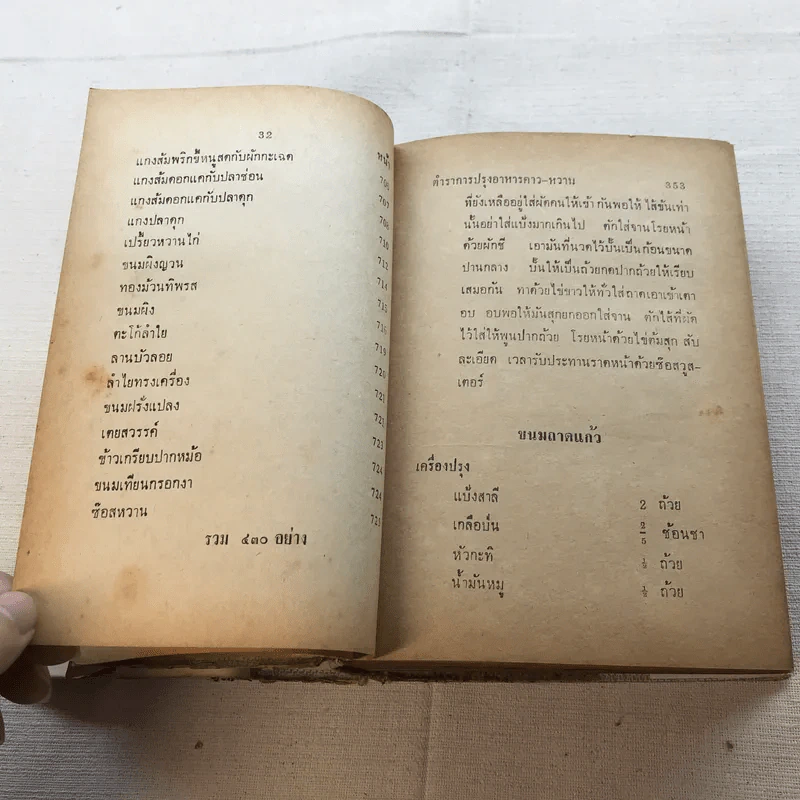 32
หน้า
แกงส้มพริกขี้หนูสดกับผักกะเฉด
แกงส้มดอกแคกับปลาช่อน 706
แกงส้มดอกแคกับปลาดุก 707
แกงปลาดุก 708
เปรี้ยวหวานไก่ 710
ขนมผิงญวน 712
ทองม้วนทิพรส 714
ขนมผิง 715
ตะโก้ลำไย
ลานบัวลอย 719
ลำไยทรงเครื่อง 720
ขนมฝรั่งแปลง 721
เตยสวรรค์
ข้าวเกรียบปากหม้อ 723
ขนมเทียนกรอกงา 724
ซ๊อสหวาน
รวม ๔๓๐ อย่าง
ตำราการปรุงอาหารคาว-หวาน 353
ที่ยังเหลืออยู่ใส่ผัดคนให้เข้ากันพอให้ไส้ข้นเท่า
นั้นอย่าใส่แป้งมากเกินไป ตักใส่จานโรยหน้า
ด้วยผักชี เอามันที่นวดไว้ปั้นเป็นก้อนขนาด
ปานกลาง ปั้นให้เป็นถ้วยกดปากถ้วยให้เรียบ
เสมอกัน ทาด้วยไข่ขาวให้ทั่วใส่ถาดเอาเข้าเตา
อบ อบพอให้มันสุกยกออกใส่จาน ตักไส้ที่ผัด
ไว้ใส่ให้พูนปากถ้วย โรยหน้าด้วยไข่ต้มสุก สับ
ละเอียด เวลารับประทานราดหน้าด้วยซ๊อสวูส-
เตอร์
ขนมถาดแก้ว
เครื่องปรุง
แป้งสาลี 2 ถ้วย
เกลือป่น 2/5 ช้อนชา
หัวกะทิ ถ้วย
น้ำมันหมู ถ้วย